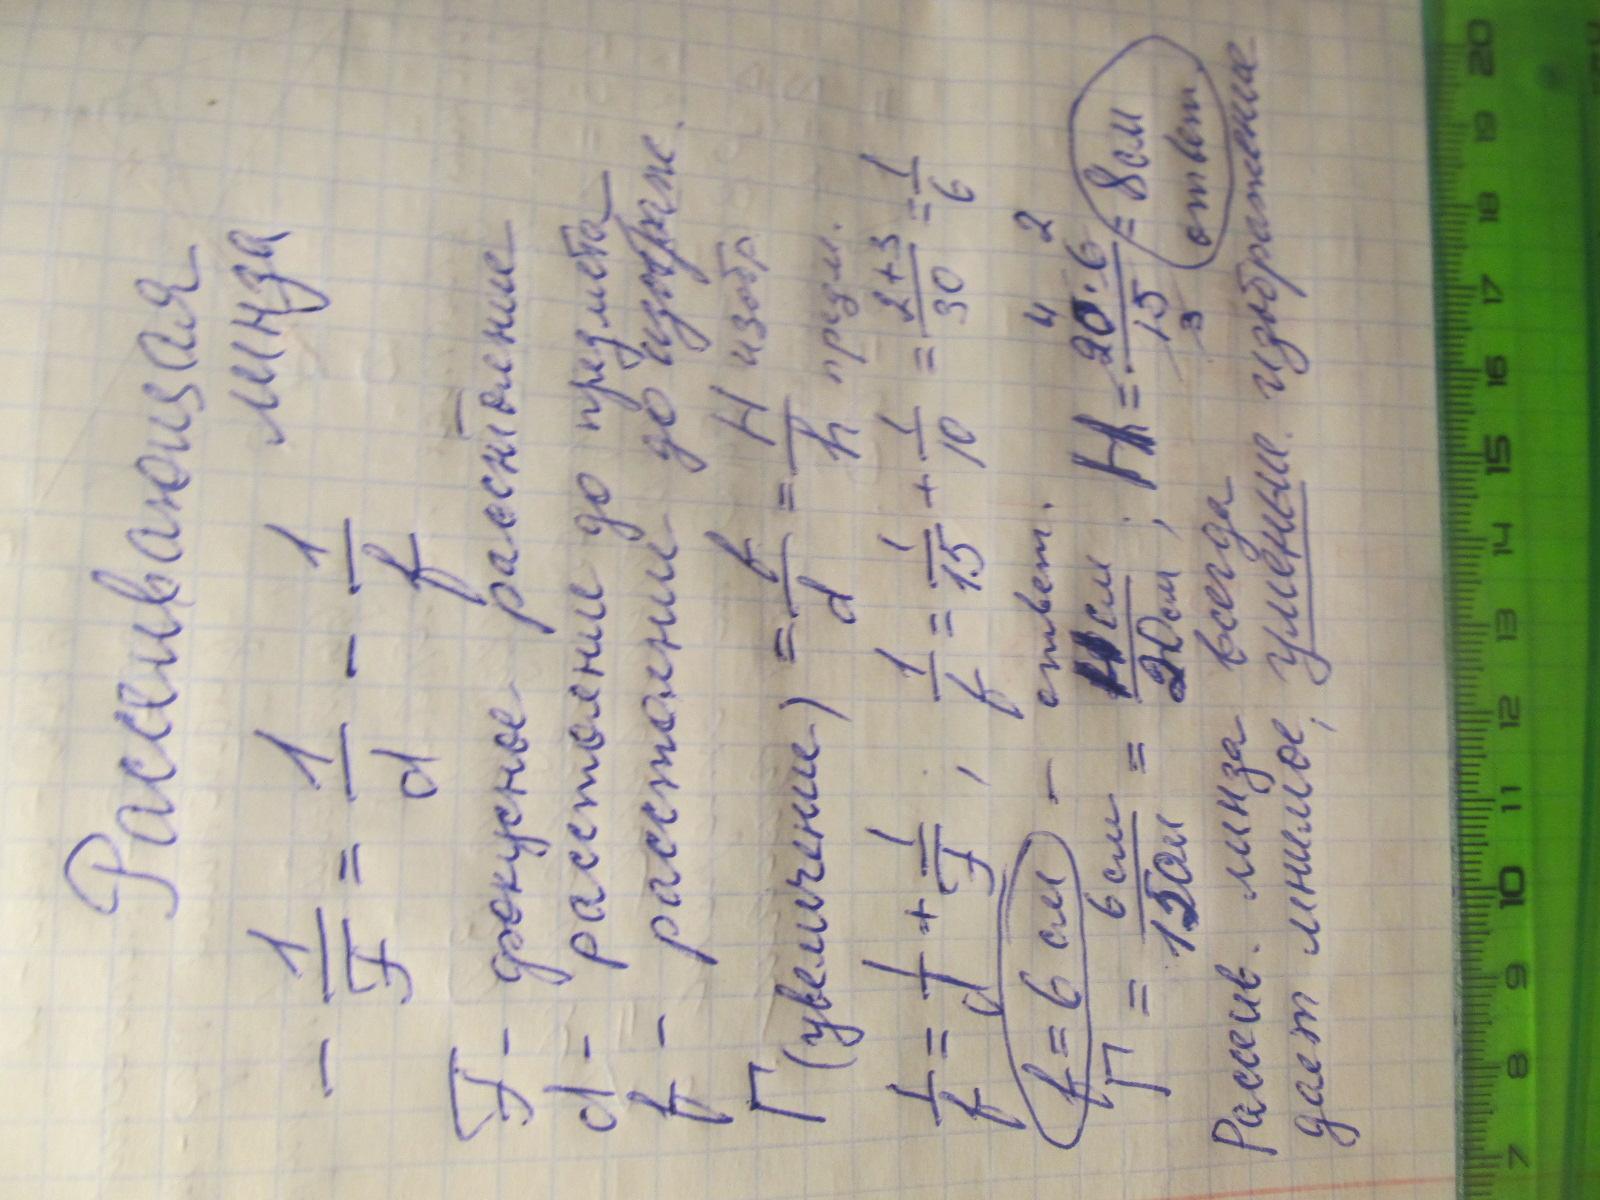 Рассеивающая
линза
- 1/F = 1/d - 1/f
F - фокусное расстояние
d - расстояние до предмета
f - расстояние до изображ.
Г (увеличение) = f/d = H/h изобр. предм.
1/f = 1/d + 1/F ; 1/f = 1/15 + 1/10 = 2+3/30 = 1/6
f = 6 см - ответ.
Г = 6 см/15 см = H см/20 см ; H = 20·6/15 = 8 см
4 2 3
ответ
Рассив. линза всегда
дает мнимое, уменьые. изображение
7 8 9 10 11 12 13 14 15 16 17 18 19 20